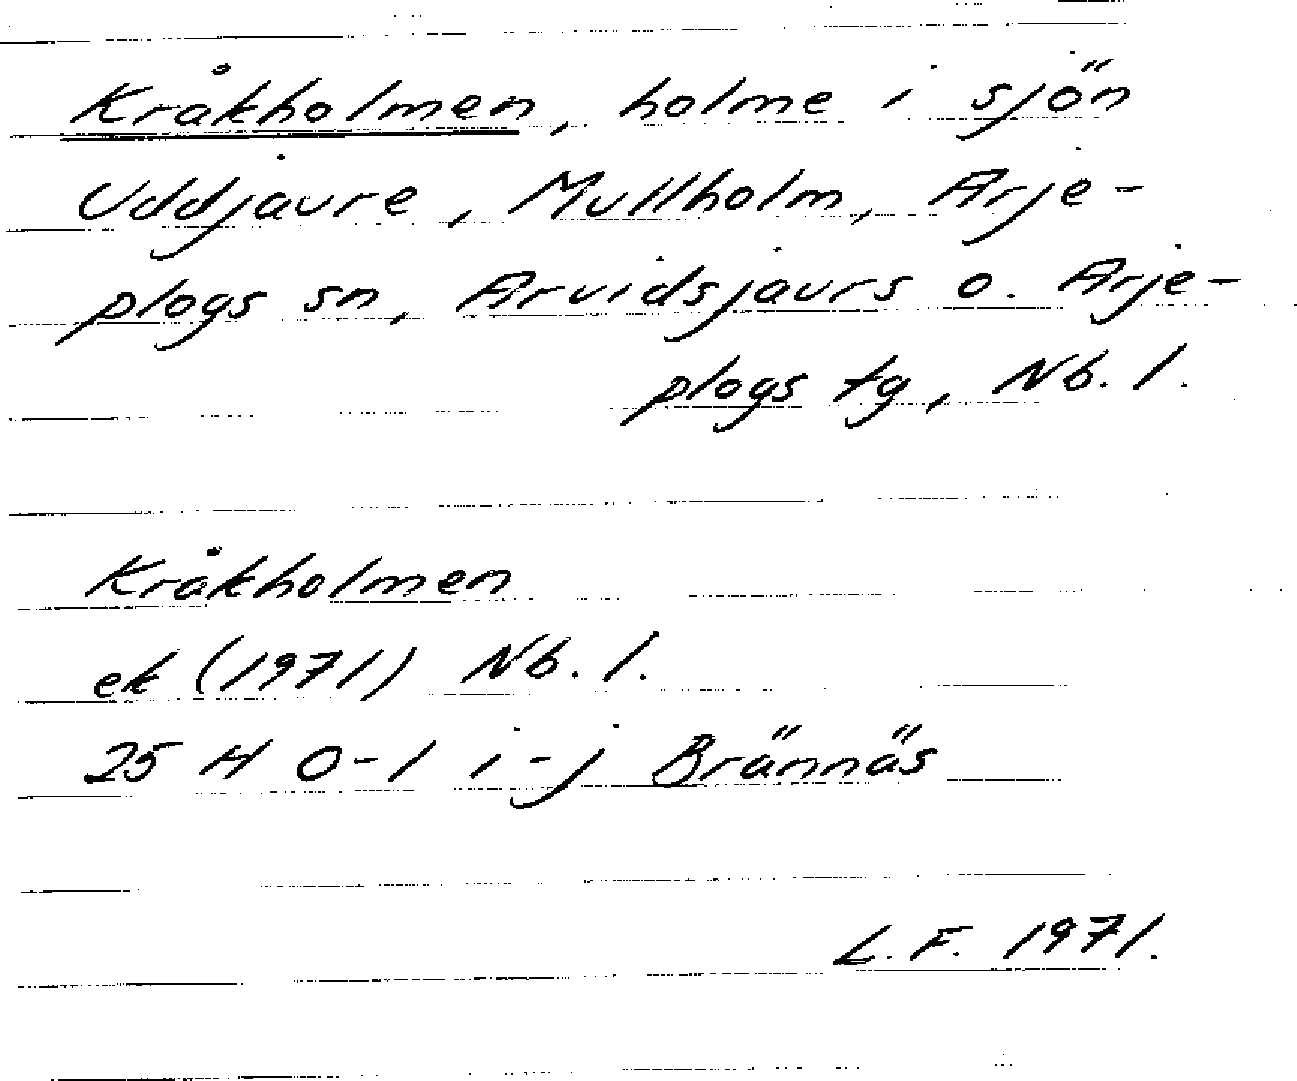 Kråkholmen, holme i sjön
Uddjaure, Mullholm, Arje-
plogs sn, Arvidsjaurs o. Arje-
plogs tg, Nb. l.
Kråkholmen
ek (1971) Nb. l.
25 H 0-1 i-j Brännäs
L. F. 1971.